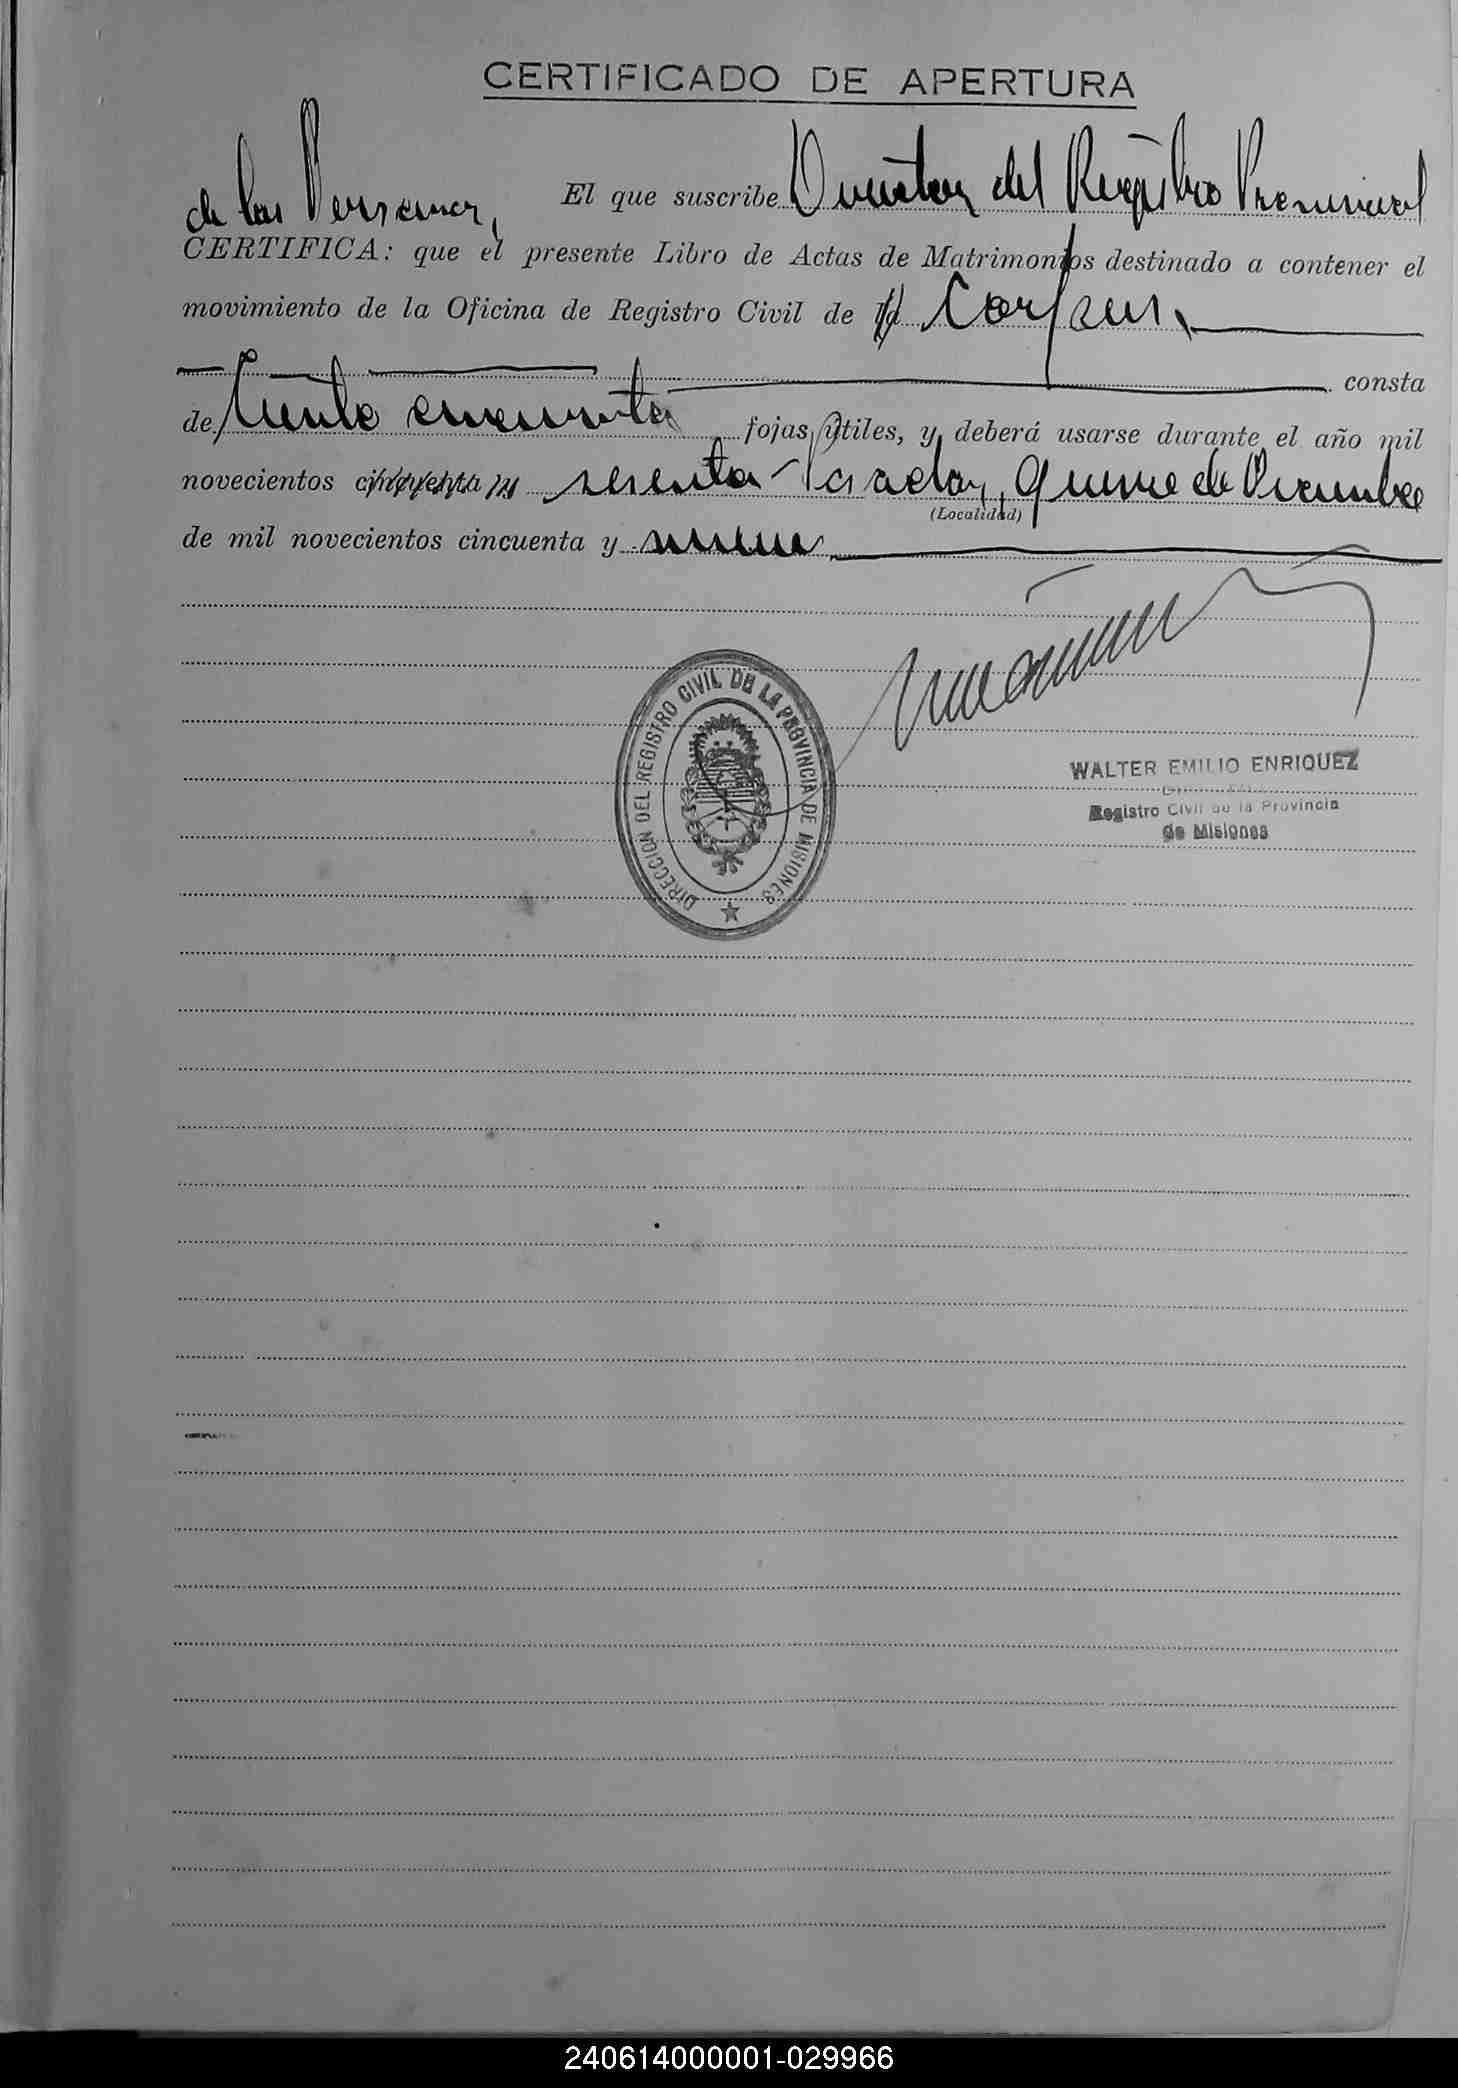 CERTIFICADO DE APERTURA
El que suscribe Director del Registro Provincial
de las Personas,
CERTIFICA: que el presente Libro de Actas de Matrimonios destinado a contener el
movimiento de la Oficina de Registro Civil de
consta
de Ciento cincuenta fojas útiles, y deberá usarse durante el año mil
novecientos cincuenta y sesenta - Posadas, Quince de Diciembre
(Localidad)
de mil novecientos cincuenta y nueve
DIRECCION DEL REGISTRO CIVIL DE LA PROVINCIA DE MISIONES
WALTER EMILIO ENRIQUEZ
Registro Civil de la Provincia
de Misiones
240614000001-029966